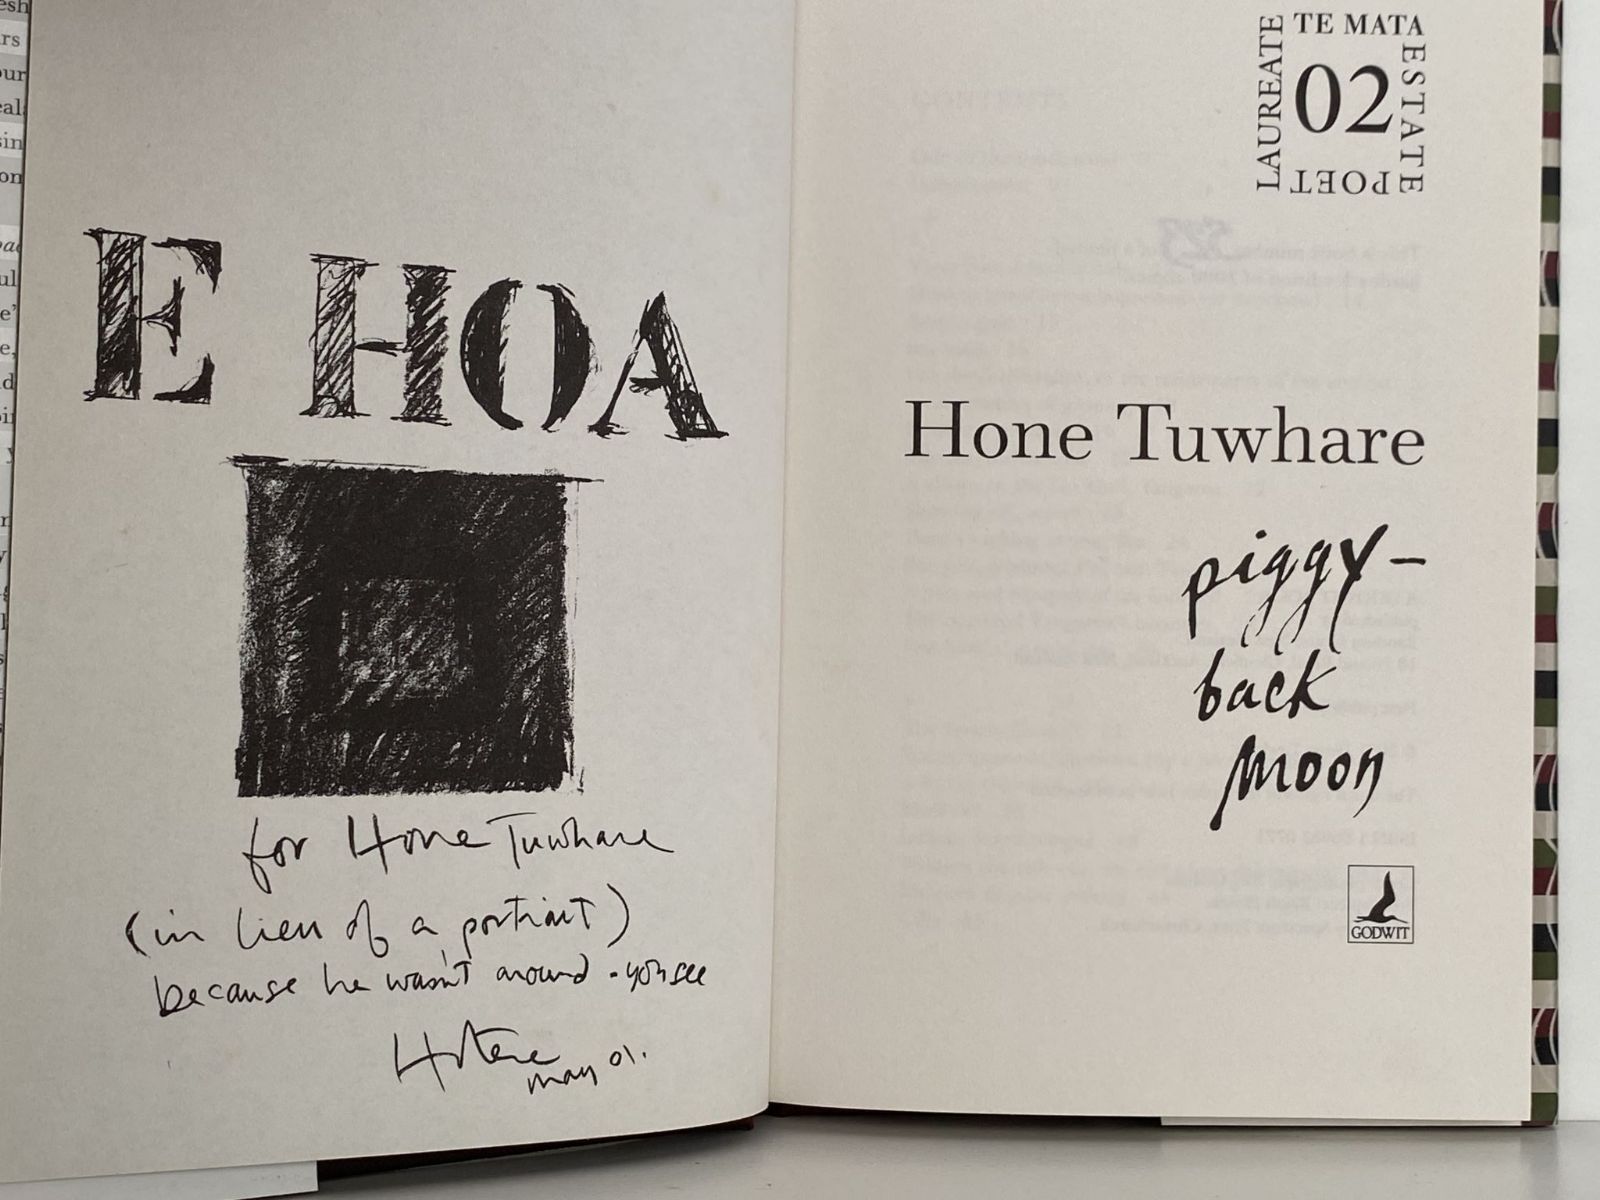 E HOA
for Hone Tuwhare
(in lieu of a portrait)
because he wasn't around - you see
Hotere
may 01.
TE MATA
ESTATE
POET
LAUREATE
02
Hone Tuwhare
piggy-
back
moon
GODWIT